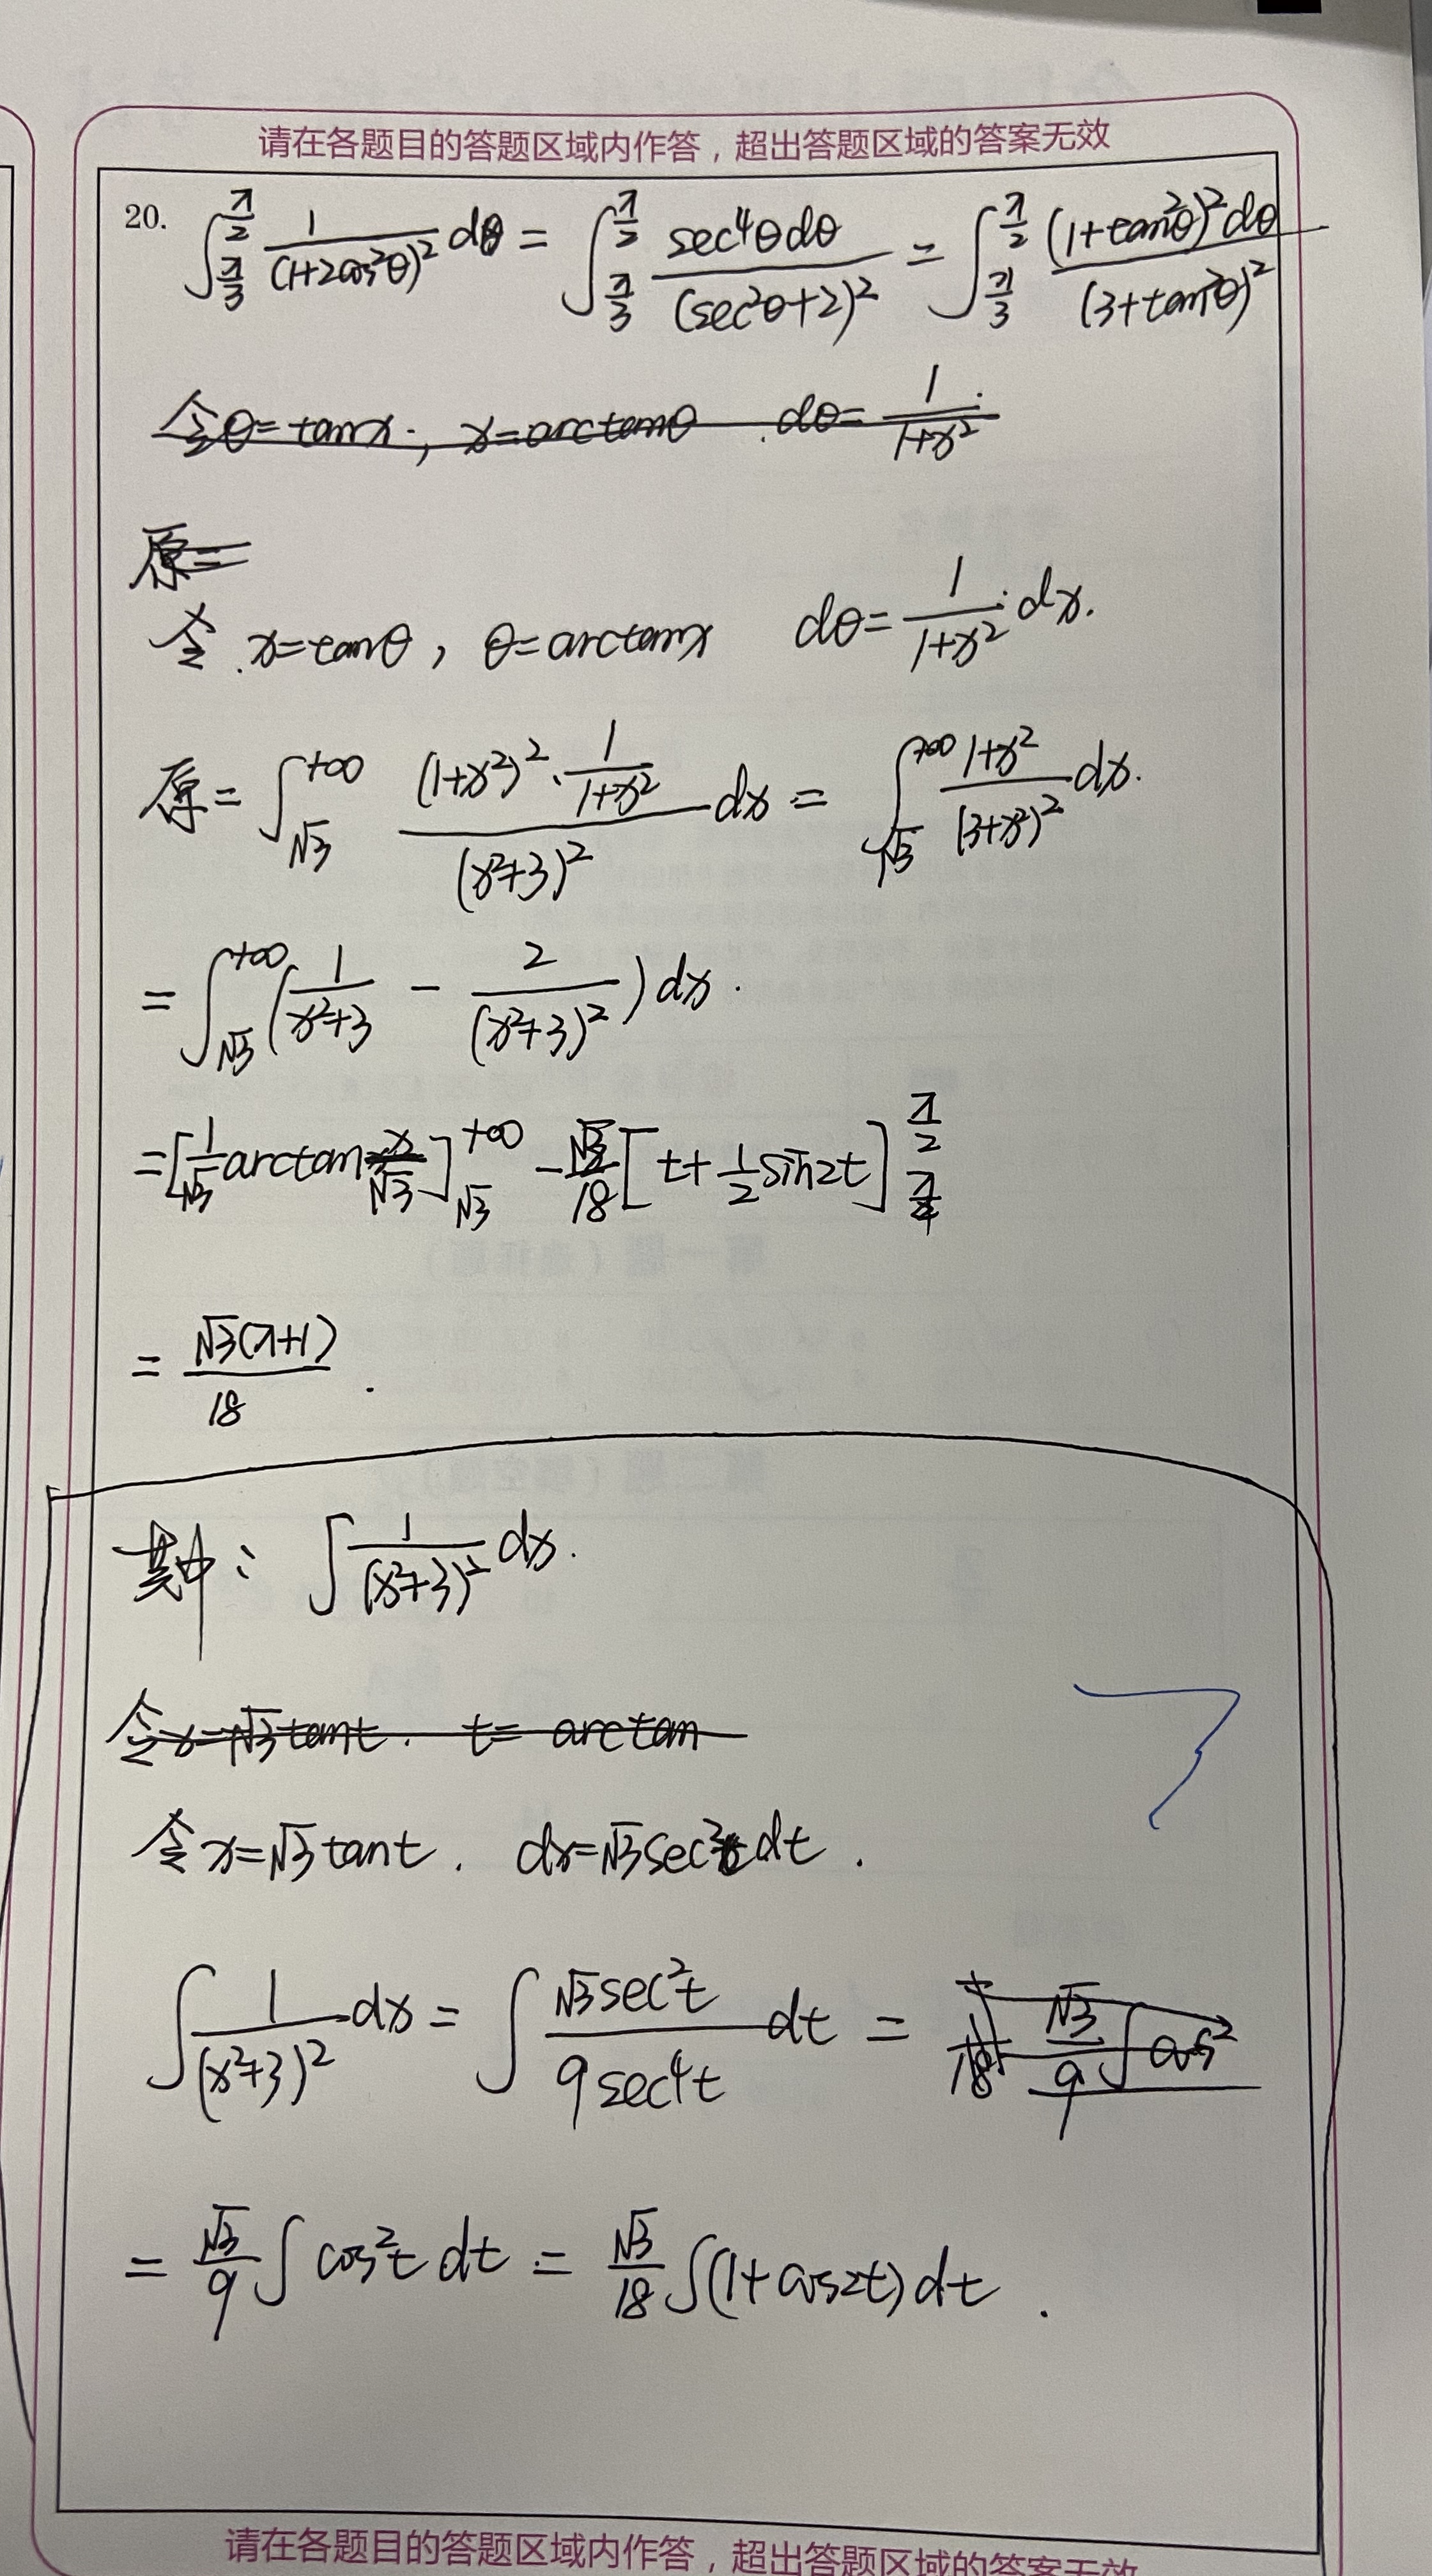 请在各题目的答题区域内作答，超出答题区域的答案无效
20. ∫_{π/3}^{π/2} 1/(1+2cos²θ)² dθ = ∫_{π/3}^{π/2} sec⁴θdθ/(sec²θ+2)² = ∫_{π/3}^{π/2} (1+tan²θ)²dθ/(3+tan²θ)²
令θ=tanx, x=arctanθ dθ=1/(1+x²)
原=
令 x=tanθ, θ=arctanx dθ=1/(1+x²)·dx.
原=∫_{√3}^{+∞} (1+x²)²·1/(1+x²)/(x²+3)² dx = ∫_{√3}^{+∞} (1+x²)/(3+x²)² dx.
=∫_{√3}^{+∞} (1/(x²+3) - 2/(x²+3)²)dx.
=[1/√3 arctan x/√3]_{√3}^{+∞} - √3/18 [t+1/2 sin2t]_{π/4}^{π/2}
= √3(π+1)/18.
其中: ∫1/(x²+3)² dx.
令x=√3tant. t= arctan
令x=√3tant. dx=√3sec²tdt.
∫1/(x²+3)² dx = ∫√3sec²t/9sec⁴t dt = √3/9∫cos²
= √3/9∫cos²t dt = √3/18∫(1+cos2t)dt.
请在各题目的答题区域内作答，超出答题区域的答案无效